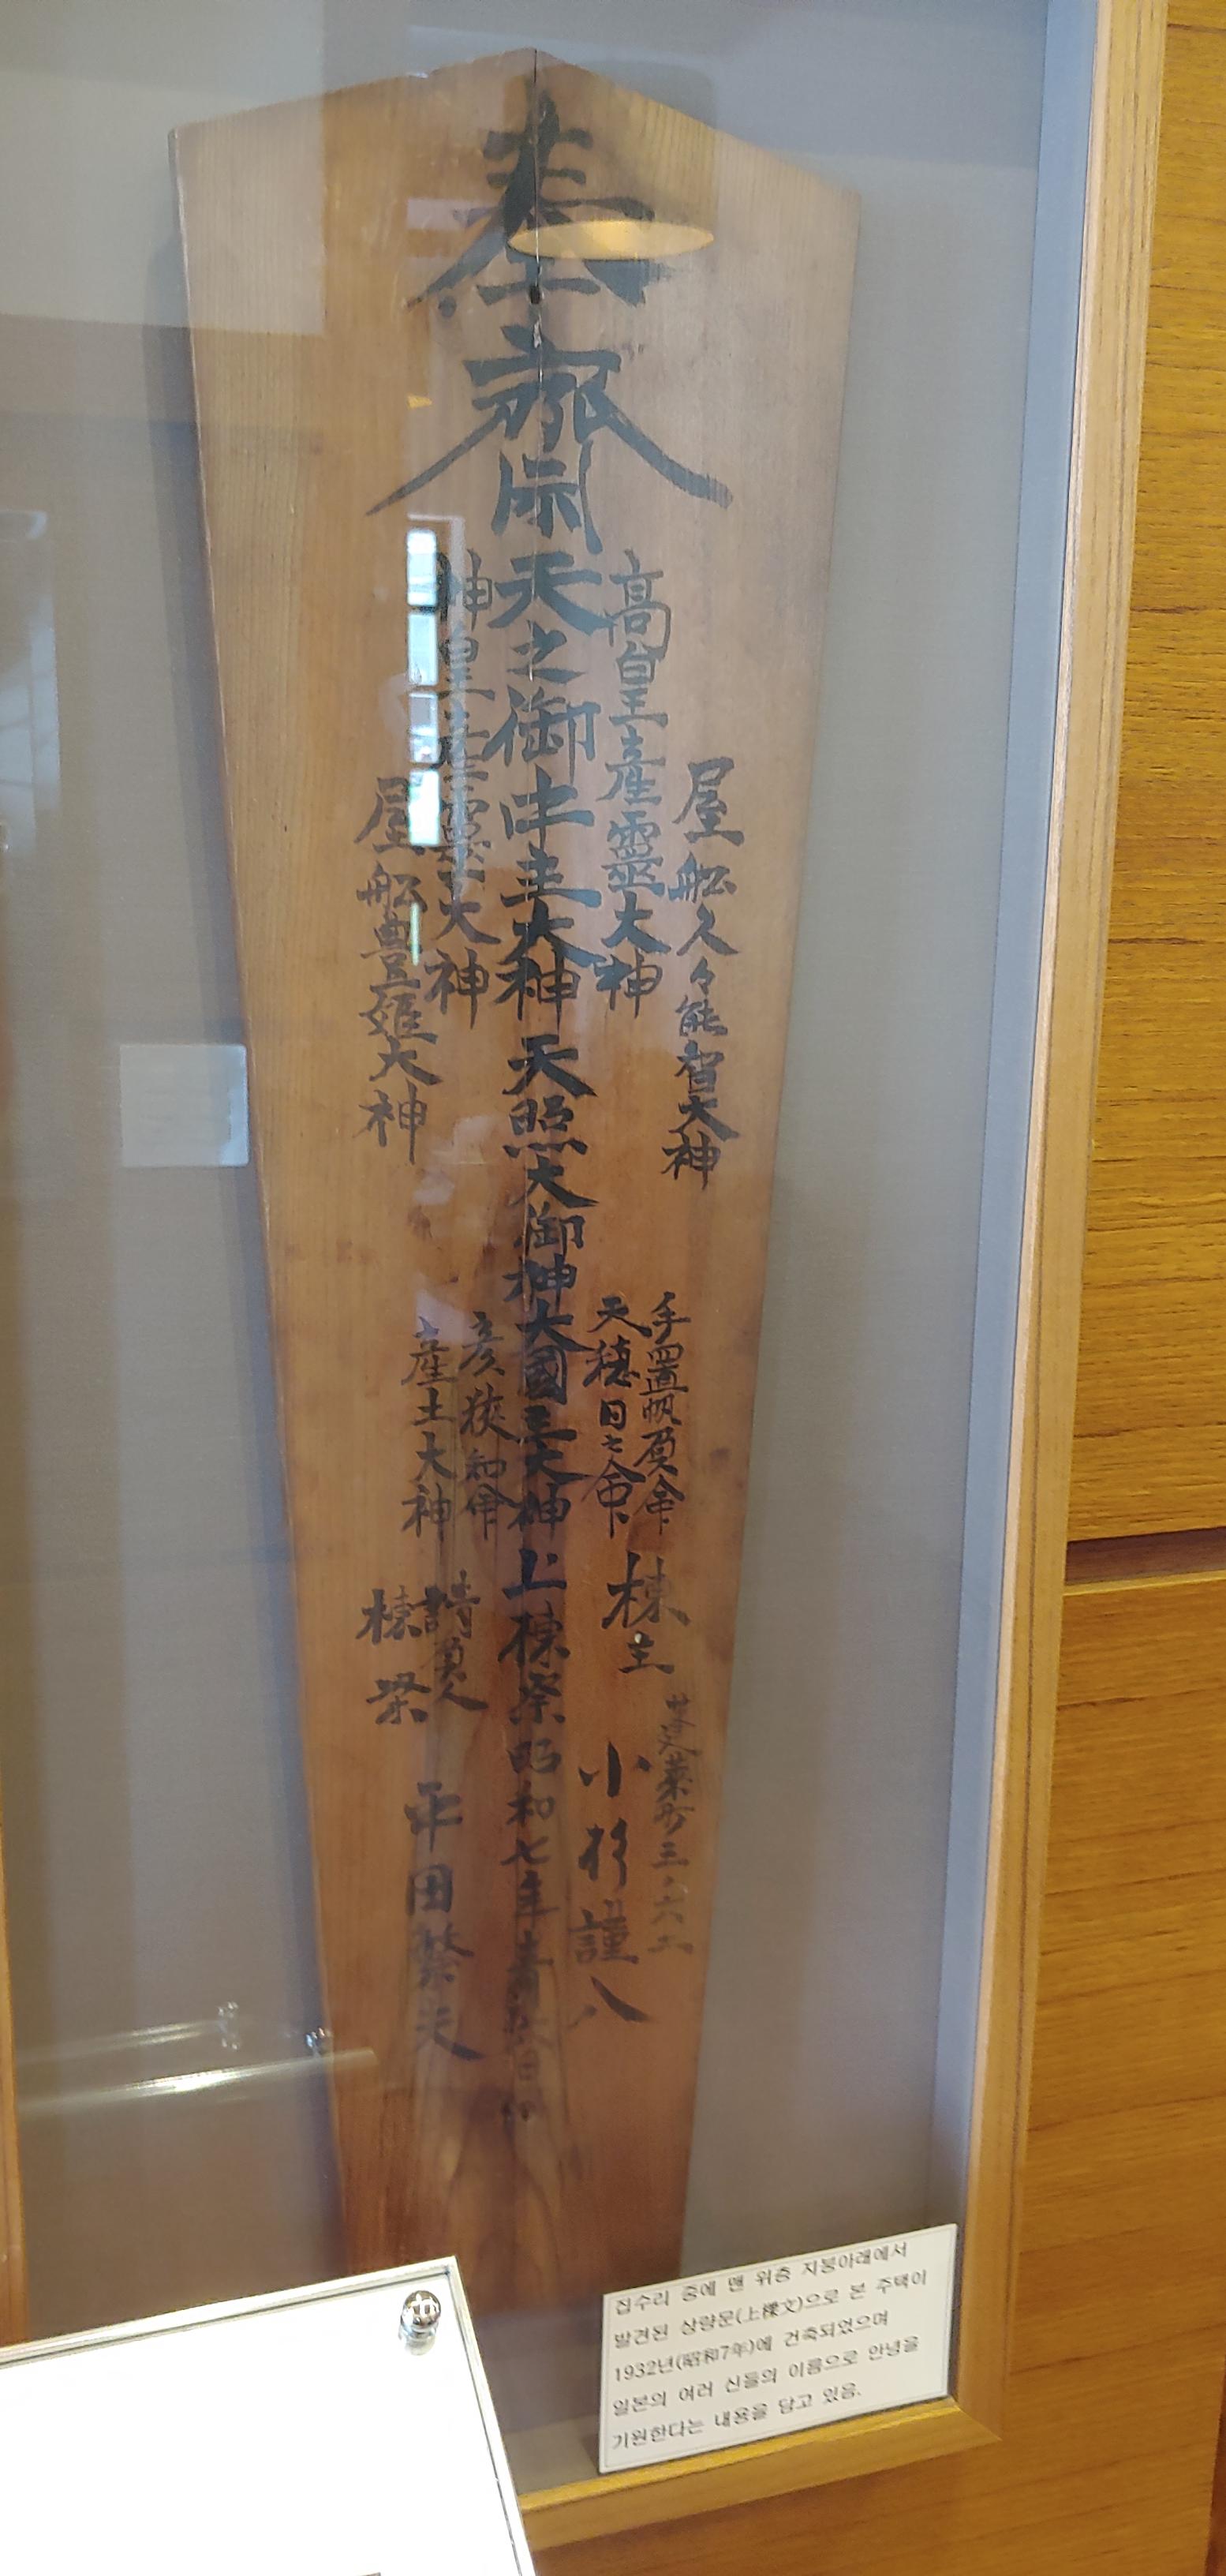 屋船久々能智大神
高皇産靈大神
奉齋
天之御中主大神 天照大御神 大國主大神 上棟祭 昭和七年
神皇産靈大神
屋船豊姫大神
手置帆負命
天穂日之命
彦狭知命
産土大神
棟主
蓬莱町三ノ六
小杉謹八
請負人
棟梁
平田繁夫
집수리 중에 맨 위층 지붕아래에서
발견된 상량문(上樑文)으로 본 주택이
1932년(昭和7年)에 건축되었으며
일본의 여러 신들의 이름으로 안녕을
기원한다는 내용을 담고 있음.